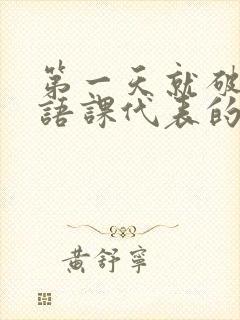 第一天就破
語課代表的
黃舒寧